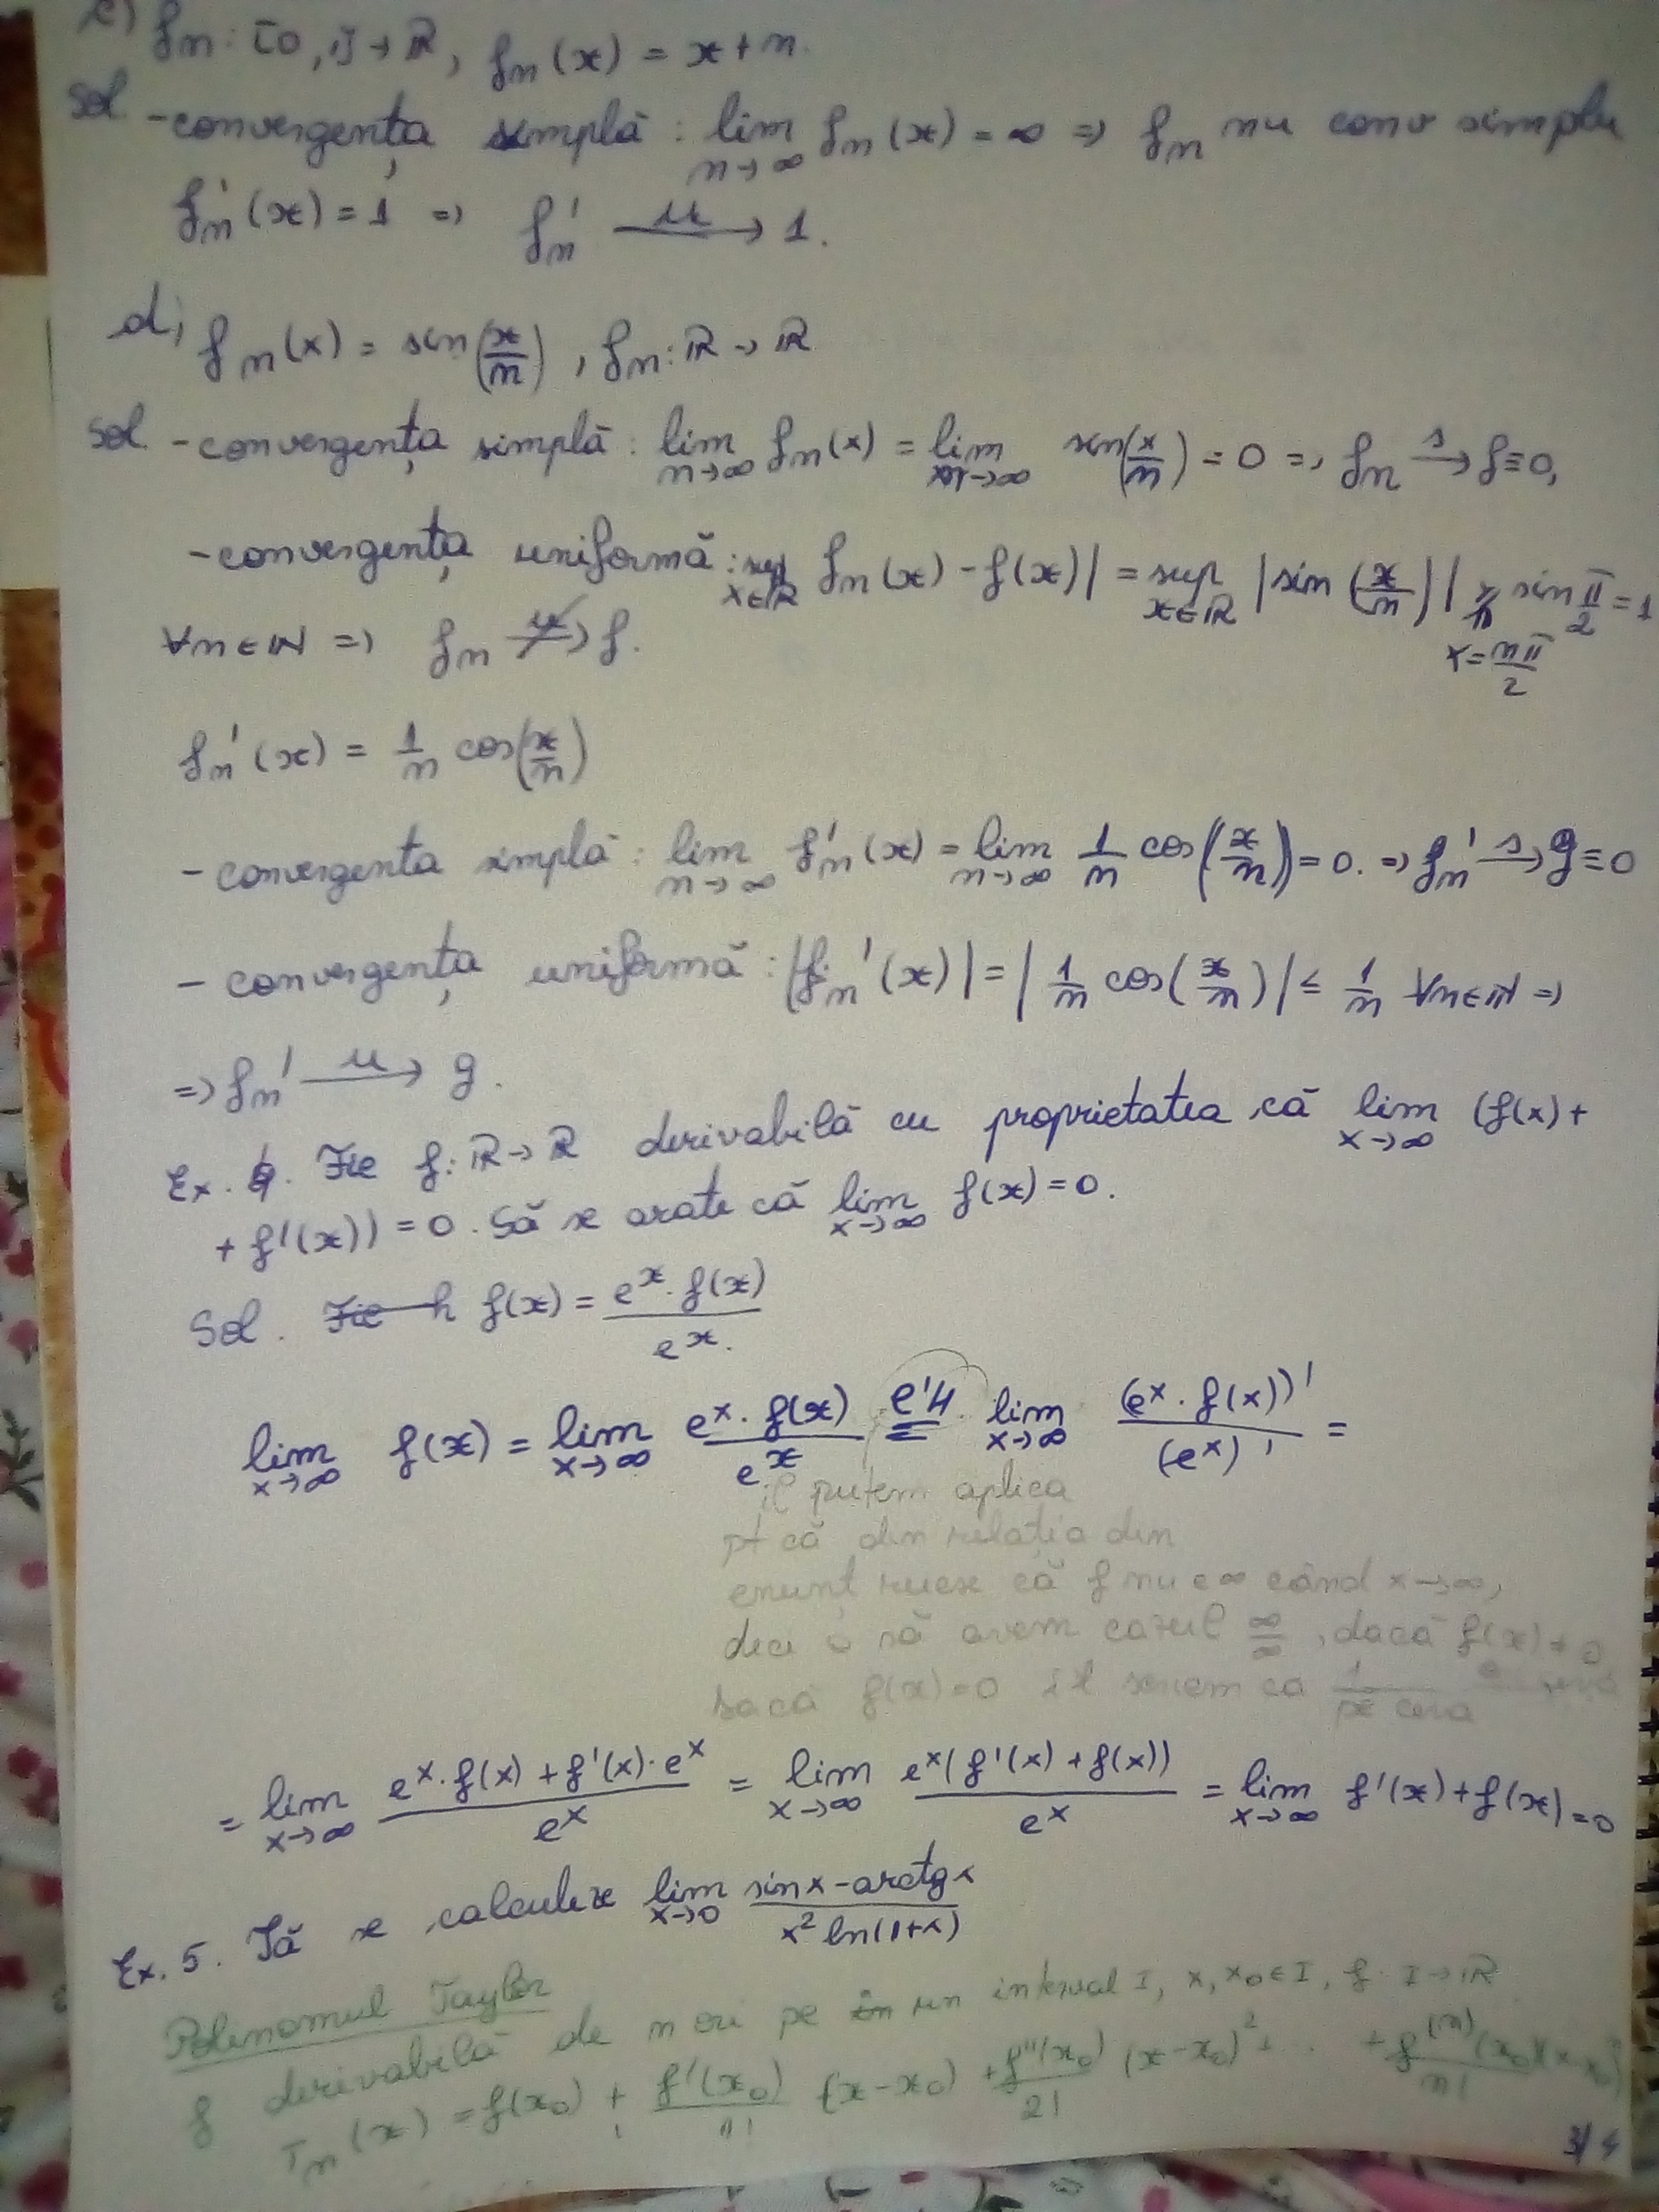 c) fn: [0,1] → ℝ, fn(x) = x+n.
Sol. -convergența simplă: lim n→∞ fn(x) = ∞ => fn nu conv simplu
fn'(x) = 1 => fn' →u 1.
d) fn(x) = sin(x/n), fn: ℝ → ℝ
Sol. -convergența simplă: lim n→∞ fn(x) = lim n→∞ sin(x/n) = 0 => fn →s f≡0,
-convergența uniformă: sup x∈ℝ fn(x) - f(x)| = sup x∈ℝ |sin(x/n)| ≥ sin π/2 = 1
x = nπ/2
∀n∈ℕ => fn ↛u f.
fn'(x) = 1/n cos(x/n)
- convergenta simplă: lim n→∞ fn'(x) = lim n→∞ 1/n cos(x/n) = 0. => fn' →s g≡0
- convergența uniformă: |fn'(x)| = |1/n cos(x/n)| ≤ 1/n ∀n∈ℕ =>
=> fn' →u g.
Ex. 4. Fie f: ℝ→ℝ derivabilă cu proprietatea că lim x→∞ (f(x)+
+ f'(x)) = 0. Să se arate că lim x→∞ f(x) = 0.
Sol. Fie h f(x) = e^x · f(x) / e^x.
lim x→∞ f(x) = lim x→∞ e^x · f(x) / e^x =l'H lim x→∞ (e^x · f(x))' / (e^x)' =
îl putem aplica
pt că din relația din
enunț reiese că f nu e ∞ când x→∞,
deci o să avem cazul ∞/∞, dacă f(x) ≠ 0
Dacă f(x)=0 îl scriem ca 1/pe ceva
= lim x→∞ e^x · f(x) + f'(x) · e^x / e^x = lim x→∞ e^x (f'(x) + f(x)) / e^x = lim x→∞ f'(x) + f(x) = 0
Ex. 5. Să se calculeze lim x→0 sin x - arctg x / x² ln(1+x)
Polinomul Taylor
f derivabilă de n ori pe un interval I, x, x₀ ∈ I, f: I→ℝ
Tn(x) = f(x₀) + f'(x₀)/1! (x-x₀) + f''(x₀)/2! (x-x₀)² + ... + f^(n)(x₀)/n! (x-x₀)^n
3/4